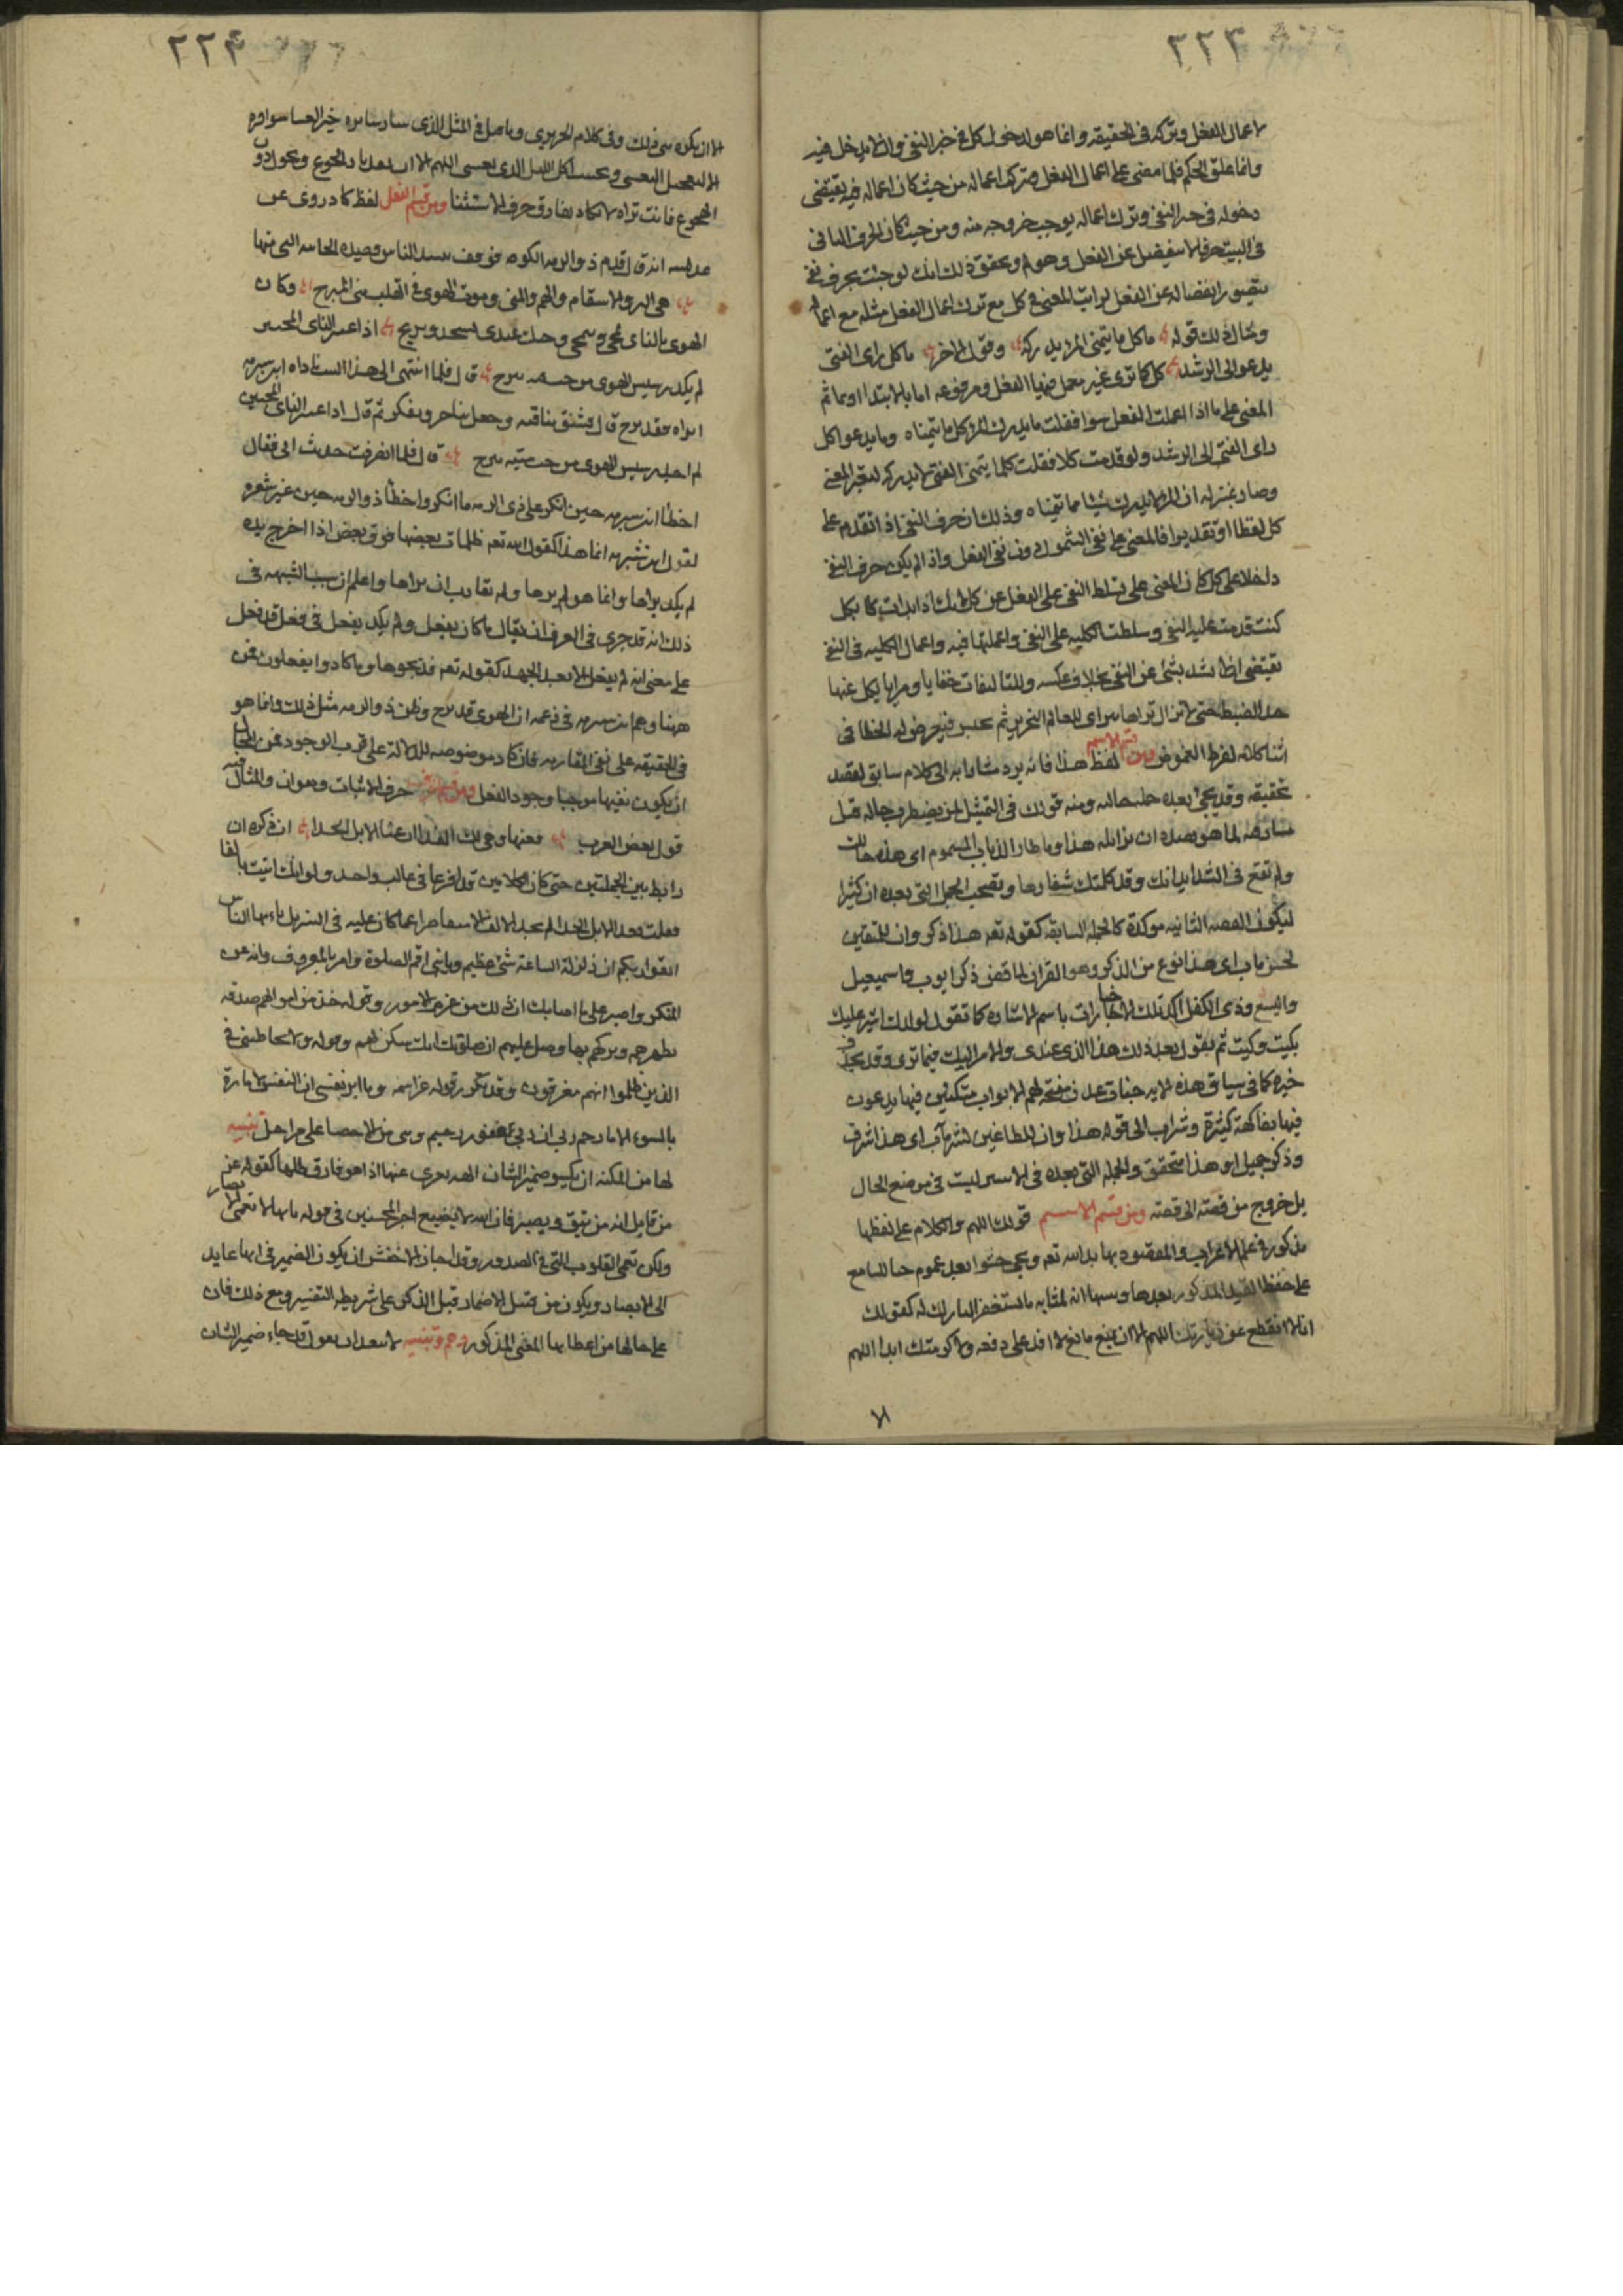 ٢٢٣
لاعمال الفعل وتركه في الحقيقة وانما هو لدخول كل في خبر النفي وان لا يدخل فيه
وانما علق الحكم فلما مضى على اعمال الفعل وترك اعماله من حيث كان اعماله فيه يقتضي
دخوله في حيز النفي وترك اعماله يوجب خروجه منه ومن حيث كان الحرف النافي
في البيت حرفا لا ينفصل عن الفعل وهو لم وتحقق ذلك انك لو جئت بحرف نفي
يتصور انفصاله عن الفعل لرايت المعنى في كل مع ترك اعمال الفعل مثله مع اعماله
ومثال ذلك قوله ما كل ما يتمنى المرء يدركه وقول الاخر ما كل راى الفتى
يدعو الى الرشد كل كما ترى غير معمل فيها الفعل ومرفوعه اما بالابتدا او بما ثم
المعنى على ما اذا اعملت الفعل سوا فقلت ما يدرك المرء كل ما يتمناه وما يدعوا كل
راى الفتى الى الرشد ولو قدمت كلا فقلت كلما يتمنى الفتى لا يدركه لتغير المعنى
وصار بمنزلة ان المرء لا يدرك شيئا مما يتمناه وذلك ان حرف النفي اذا تقدم على
كل لفظا او تقديرا فالمعنى على نفي الشمول دون نفي الفعل واذا لم يكن حرف النفي
داخلا على كل كان المعنى على تسلط النفي على الفعل عن كل لانك اذا بدات كلا بكل
كنت قدمت عليه النفي وسلطت الكلية على النفي واعملتها فيه واعمال الكلية في النفي
تقتضي ان لا يشد شيء عن النفي بخلاف عكسه وللتاليفات خفايا ومزايا يكل عنها
حد الضبط حتى لا تزال تراها
اثنا كلامه لفرط الغموض ومن قسم الاسم لفظ هذا فانه يرد مشارا به الى كلام سابق لقصد
تحقيقه وقد يجئ بعده جملة حالية ومنه قولك في التمثيل لمن يضطرب حاله قبل
هذا وما طار الذباب المسموم اى هذه حالك
ولم تقع في الشدايد انك وقد كلمتك شفارها وتصحب الجمل التي بعده ان كثيرا
ليكون القصه الثانية موكدة كالجملة السابقة كقوله تعه هذا ذكر وان للمتقين
لحسن ماب اى هذا نوع من الذكر وهو القران لما قضى ذكر ايوب واسمعيل
واليسع وذى الكفل اكد تلك الاخبارات باسم الاشاره كما تقول لولدك اشير عليك
بكيت وكيت ثم تقول بعد ذلك هذا الذى عندى والامر اليك فيما ترى وقد يحذف
خبره كما في سياق هذه الايه جنات عدن مفتحة لهم الابواب متكئين فيها يدعون
فيها بفاكهة كثيرة وشراب الى قوله هذا وان للطاغين لشر مآب اى هذا شرف
وذكر جميل او هذا متحقق والجملة التي بعده في الامرين ليست في موضع الحال
بل خروج من قصة الى قصة ومن قسم الاسم قولك اللهم والكلام على لفظها
مذكور في علم الاعراب والمقصود بها بدا الله تعه ويجئ حشوا بعد عموم حثا للسامع
على حفظ القيد المذكور بعدها
انا لا انقطع عن زيارتك اللهم الا ان يمنع مانع لا اقدر على دفعه ولا اكرمتك ابدا اللهم
الا
٢٢٤
الا ان يكون من ذلك وفي كلام الحريري وما قيل في المثل الذى سار سايره خير العشا سوافره
الا ليعجل التعشى ويجتنب اكل الليل الذى يعشى اللهم الا ان تقد نار الجوع وتحول دون
الهجوع فانت تراه لا يكاد يفارق حرف الاستثنا ومن قسم الفعل لفظ كاد روى عن
عنبسه انه قال قدم ذو الرمه الكوفه فوقف ينشد الناس قصيدة الحائيه التي منها
هي البرء والاسقام والهم والمنى وموت الهوى في القلب مني المبرح وكان
الهوى بالناى يمحى فيمحى وحبك عندى يستجد ويربح اذا غير الناى المحبين
لم يكد رسيس الهوى من حب ميه يبرح قال فلما انتهى الى هذا البيت ناداه ابن شبرمه
اراه قد برح قال فشنق ناقته وجعل يتاخر ويفكر ثم قال اذا غير الناى المحبين
لم اجد رسيس الهوى من حب ميه يبرح قال فلما انصرفت حدثت ابى فقال
اخطا ابن شبرمه حين انكر على ذى الرمه ما انكر واخطا ذو الرمه حين غير شعره
لقول ابن شبرمه انما هذا كقول الله تعه ظلمات بعضها فوق بعض اذا اخرج يده
لم يكد يراها وانما هو لم يرها ولم تقارب ان يراها واعلم ان سبب الشبهه في
ذلك انه قد جرى في العرف ان يقال ما كاد يفعل ولم يكد يفعل في فعل قد فعل
على معنى انه لم يفعل الا بعد الجهد كقوله تعه فذبحوها وما كادوا يفعلون فمن
ههنا وهم ابن شبرمه في زعمه ان الهوى قد برح وظن ذو الرمه مثل ذلك وانما هو
في الحقيقة على نفي المقاربه فان كاد موضوعه للدلالة على قرب الوجود فمن المحال
ان يكون نفيها موجبا وجود الفعل ومن قسم الحرف حرف الاثبات وهو ان والمثال فيه
قول بعض العرب فغنها وهي لك الفدا ان غنا الابل الحدا ان ذكره ان
رابط بين الجملتين حتى كان الكلامين قد افرغا في قالب واحد ولو انك اتيت بالفا
فقلت فغنا الابل الحدا لم يعد الالف لا سيما عما كان عليه في التنزيل يا ايها الناس
اتقوا ربكم ان زلزلة الساعة شئ عظيم ويا بنى اقم الصلوة وامر بالمعروف وانه عن
المنكر واصبر على ما اصابك ان ذلك من عزم الامور وقوله خذ من اموالهم صدقه
تطهرهم وتزكيهم بها وصل عليهم ان صلوتك سكن لهم وقوله ولا تخاطبنى في
الذين ظلموا انهم مغرقون وقد تكرر قوله عز اسمه وما ابرئ نفسي ان النفس لامارة
بالسوء الا ما رحم ربي ان ربي غفور رحيم وهي من الاحصا على مراحل تنبيه
لها من المكنة ان يكسو ضمير الشان ابهة يعرى عنها اذا هو فارق ظلها كقوله عز
من قايل انه من يتق ويصبر فان الله لا يضيع اجر المحسنين في قوله فانها لا تعمى الابصار
ولكن تعمى القلوب التي في الصدور وقد اجاز الاخفش ان يكون الضمير في انها عايد
الى الابصار ويكون من قبيل الاضمار قبل الذكر على شريطة التفسير ومع ذلك فان
على حالها من اعطايها المعنى المذكور وهم وتنبيه لا يبعد ان يقول قد جاء ضمير الشان